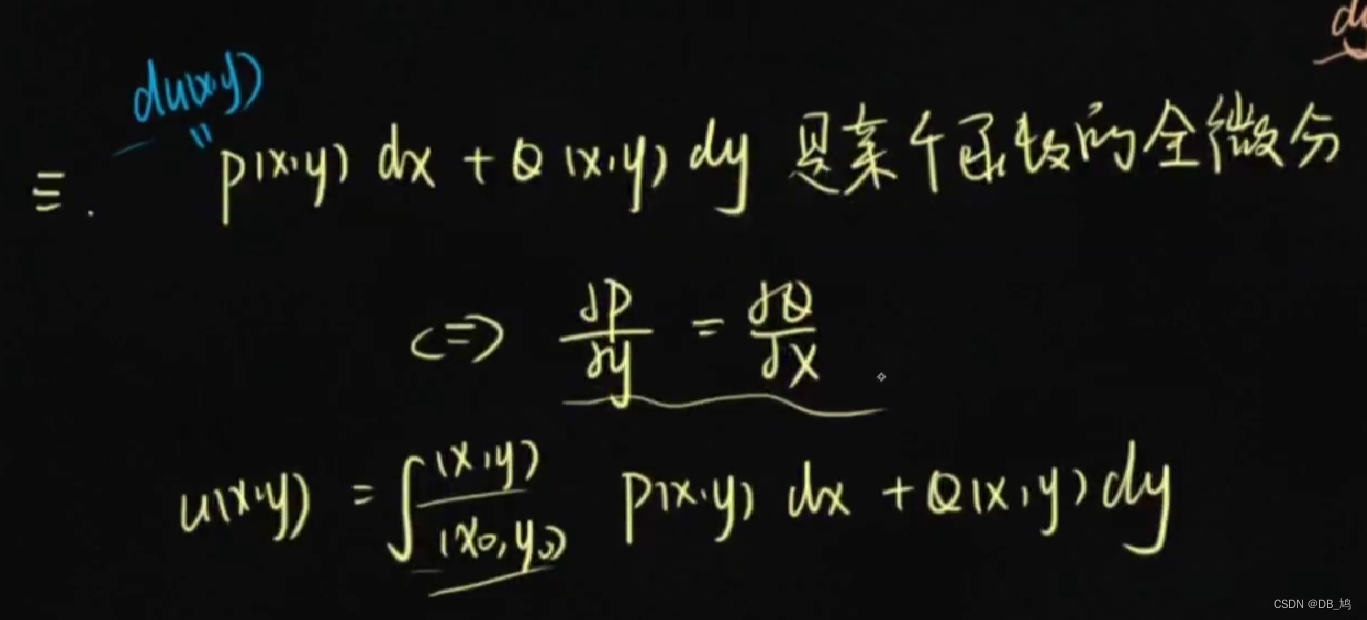 du(x,y)
"
三. P(x,y) dx + Q(x,y) dy 是某个函数的全微分
<=> ∂P/∂y = ∂Q/∂x
u(x,y) = ∫_(x₀,y₀)^(x,y) P(x,y) dx + Q(x,y) dy
CSDN @DB_鸠